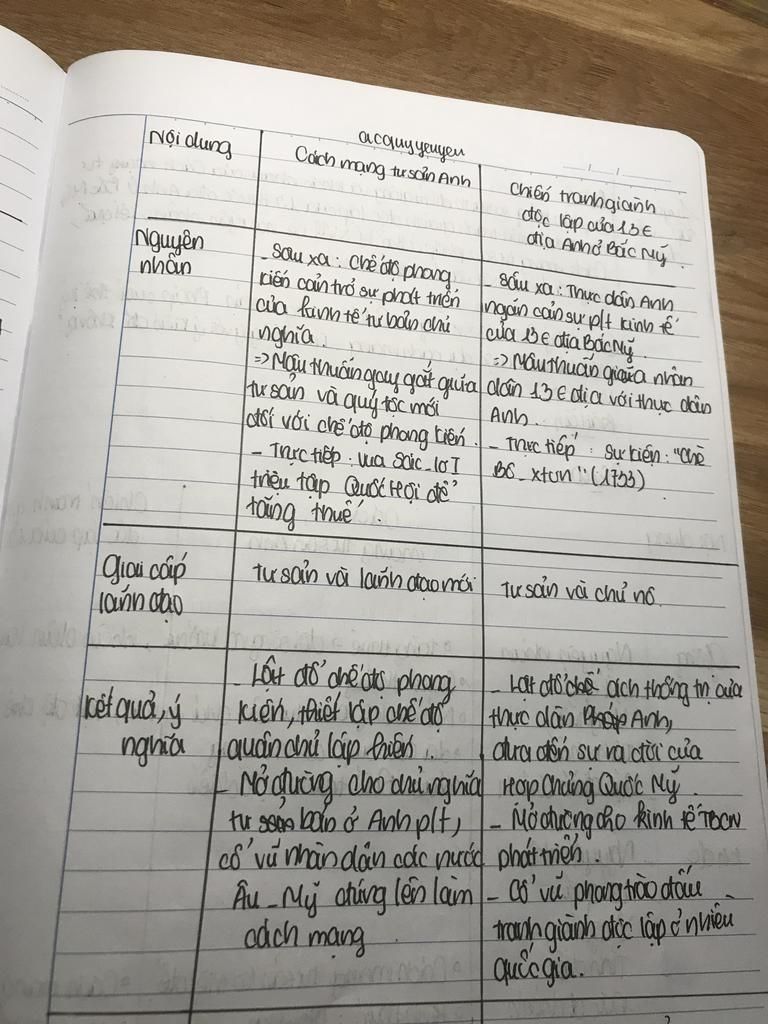 acquyyeuyeu
Nội dung
Cách mạng tư sản Anh
Chiến tranh giành
độc lập của 13 €
địa Anh ở Bắc Mỹ.
Nguyên
nhân
- Sâu xa: Chế độ phong
kiến cản trở sự phát triển
của kinh tế tư bản chủ
nghĩa.
=> Mâu thuẫn gay gắt giữa
tư sản và quý tộc mới
đối với chế độ phong kiến.
- Trực tiếp: vua Sác-lơ I
triệu tập Quốc Hội để
tăng thuế.
- Sâu xa: Thực dân Anh
ngăn cản sự p/t kinh tế
của 13 € địa Bắc Mỹ.
=> Mâu thuẫn giữa nhân
dân 13 € địa với thực dân
Anh.
- Trực tiếp: sự kiện: "Chè
Bô-xtơn" (1773)
Giai cấp
lãnh đạo
Tư sản và lãnh đạo mới
Tư sản và chủ nô.
Kết quả, ý
nghĩa
- Lật đổ chế độ phong
kiến, thiết lập chế độ
quân chủ lập hiến.
- Mở đường cho chủ nghĩa
tư bản ở Anh p/t,
cổ vũ nhân dân các nước
Âu-Mỹ đứng lên làm
cách mạng
- Lật đổ ách thống trị của
thực dân Anh,
đưa đến sự ra đời của
Hợp Chủng Quốc Mỹ.
- Mở đường cho kinh tế TBCN
phát triển.
- Cổ vũ phong trào đấu
tranh giành độc lập ở nhiều
quốc gia.